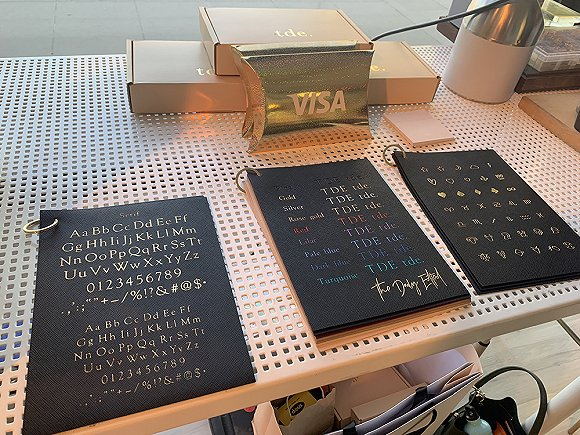 tde.
tde.
VISA
Serif
Aa Bb Cc Dd Ee Ff
Gg Hh Ii Jj Kk Ll Mm
Nn Oo Pp Qq Rr Ss Tt
Uu Vv Ww Xx Yy Zz
0123456789
Aa Bb Cc Dd Ee Ff
Gg Hh Ii Jj Kk Ll Mm
Nn Oo Pp Qq Rr Ss Tt
Uu Vv Ww Xx Yy Zz
0123456789
Gold TDE tde.
Silver TDE tde.
Rose gold TDE tde.
Red TDE tde.
TDE tde.
Pale blue TDE tde.
Dark blue TDE tde.
Turquoise TDE tde.
The Daily Edited